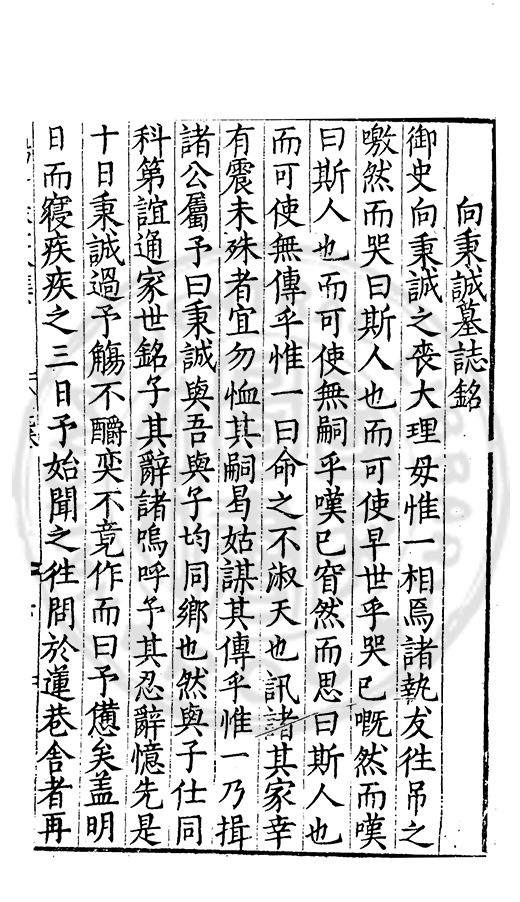 向秉誠墓誌銘
御史向秉誠之喪大理毋惟一相焉諸執友徃吊之
噭然而哭曰斯人也而可使早世乎哭已嘅然而嘆
曰斯人也而可使無嗣乎嘆已窅然而思曰斯人也
而可使無傳乎惟一曰命之不淑天也訊諸其家幸
有震未殊者宜勿恤其嗣曷姑謀其傳乎惟一乃揖
諸公屬予曰秉誠與吾與子均同鄉也然與子仕同
科第誼通家世銘子其辭諸嗚呼予其忍辭憶先是
十日秉誠過予觴不釂奕不竟作而曰予憊矣盖明
日而寢疾疾之三日予始聞之徃問於蓮巷舎者再